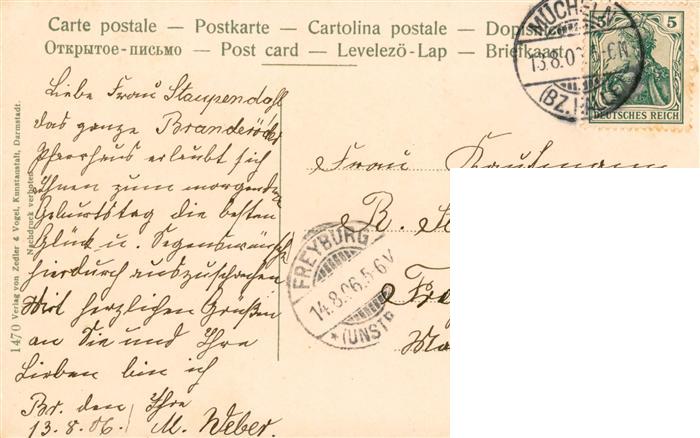 Carte postale — Postkarte — Cartolina postale — Dopisnice
Открытое-письмо — Post card — Levelező-Lap — Briefkaart
MÜCHELN
13.8.06.5-6N
(BZ.HALLE)
5 5
DEUTSCHES REICH
1470 Verlag von Zedler & Vogel, Kunstanstalt, Darmstadt.
Nachdruck verboten.
Liebe Frau Staupendahl
das ganze Branderöder
Pfarrhaus erlaubt sich
Ihnen zum morgenden
Geburtstag die besten
Glück u. Segenswünsche
hierdurch auszusprechen
Mit herzlichen Grüßen
an Sie und Ihre
Lieben bin ich
Br. den Ihre
13.8.06. M. Weber.
Frau Kaufmann
R.
FREYBURG
14.8.06.5-6V
*(UNSTR